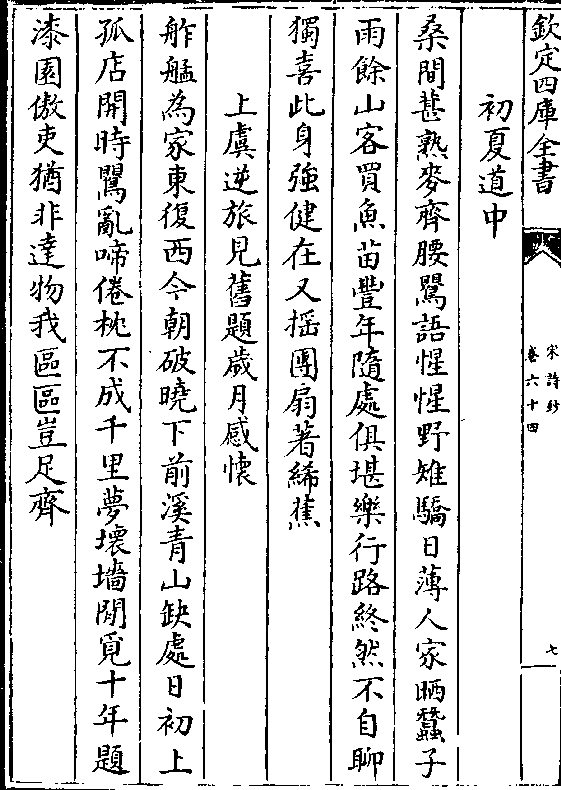 欽定四庫全書
宋詩鈔
卷六十四
七
初夏道中
桑間葚熟麥齊腰鶯語惺惺野雉驕日薄人家晒蠶子
雨餘山客買魚苗豐年隨處俱堪樂行路終然不自聊
獨喜此身強健在又揺團扇著絺蕉
上虞逆旅見舊題歲月感懷
舴艋為家東復西今朝破曉下前溪青山缺處日初上
孤店開時鶯亂啼倦枕不成千里夢壞墻閒覓十年題
漆園傲吏猶非達物我區區豈足齊